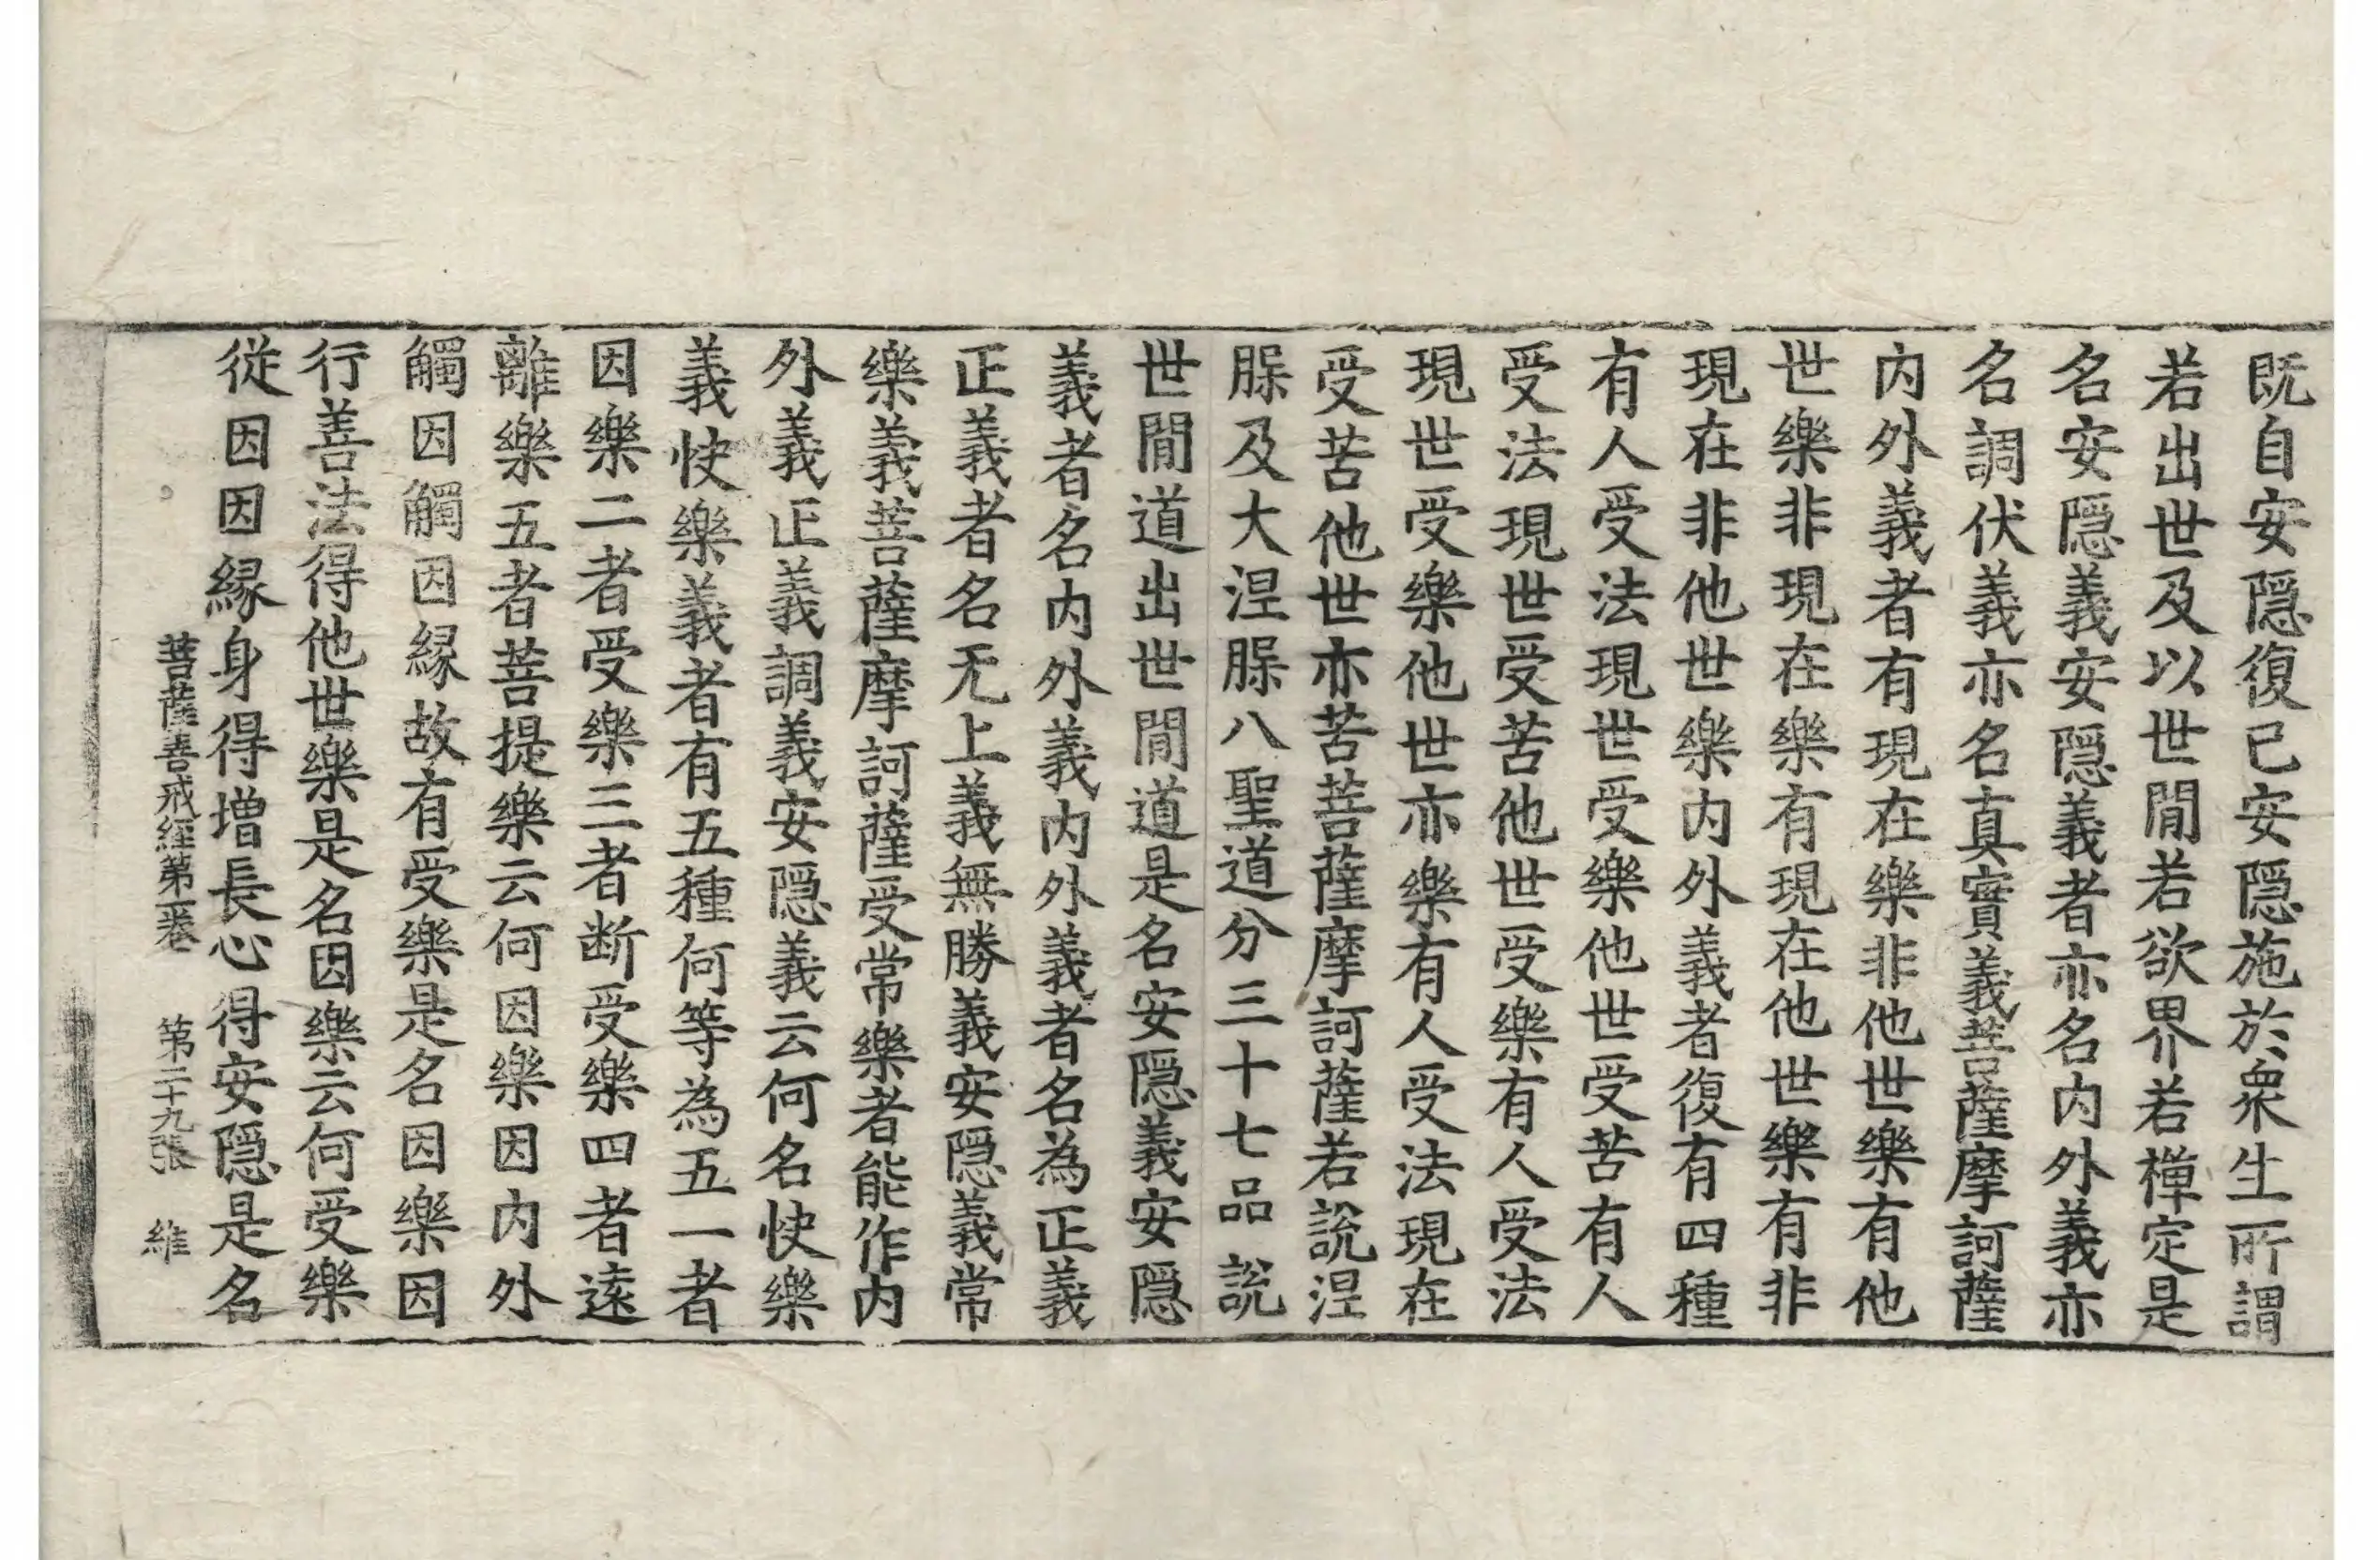 既自安隠復已安隠施於衆生所謂
若出世及以世間若欲界若禪定是
名安隠義安隠義者亦名内外義亦
名調伏義亦名真實義菩薩摩訶薩
内外義者有現在樂非他世樂有他
世樂非現在樂有現在他世樂有非
現在非他世樂内外義者復有四種
有人受法現世受樂他世受苦有人
受法現世受苦他世受樂有人受法
現世受樂他世亦樂有人受法現在
受苦他世亦苦菩薩摩訶薩若說涅
腂及大涅腂八聖道分三十七品說
世間道出世間道是名安隠義安隠
義者名内外義内外義者名為正義
正義者名无上義無勝義安隠義常
樂義菩薩摩訶薩受常樂者能作内
外義正義調義安隠義云何名快樂
義快樂義者有五種何等為五一者
因樂二者受樂三者断受樂四者逺
離樂五者菩提樂云何因樂因内外
觸因觸因縁故有受樂是名因樂因
行善法得他世樂是名因樂云何受樂
従因因縁身得增長心得安隠是名
菩薩善戒經第一卷　第二十九張　維